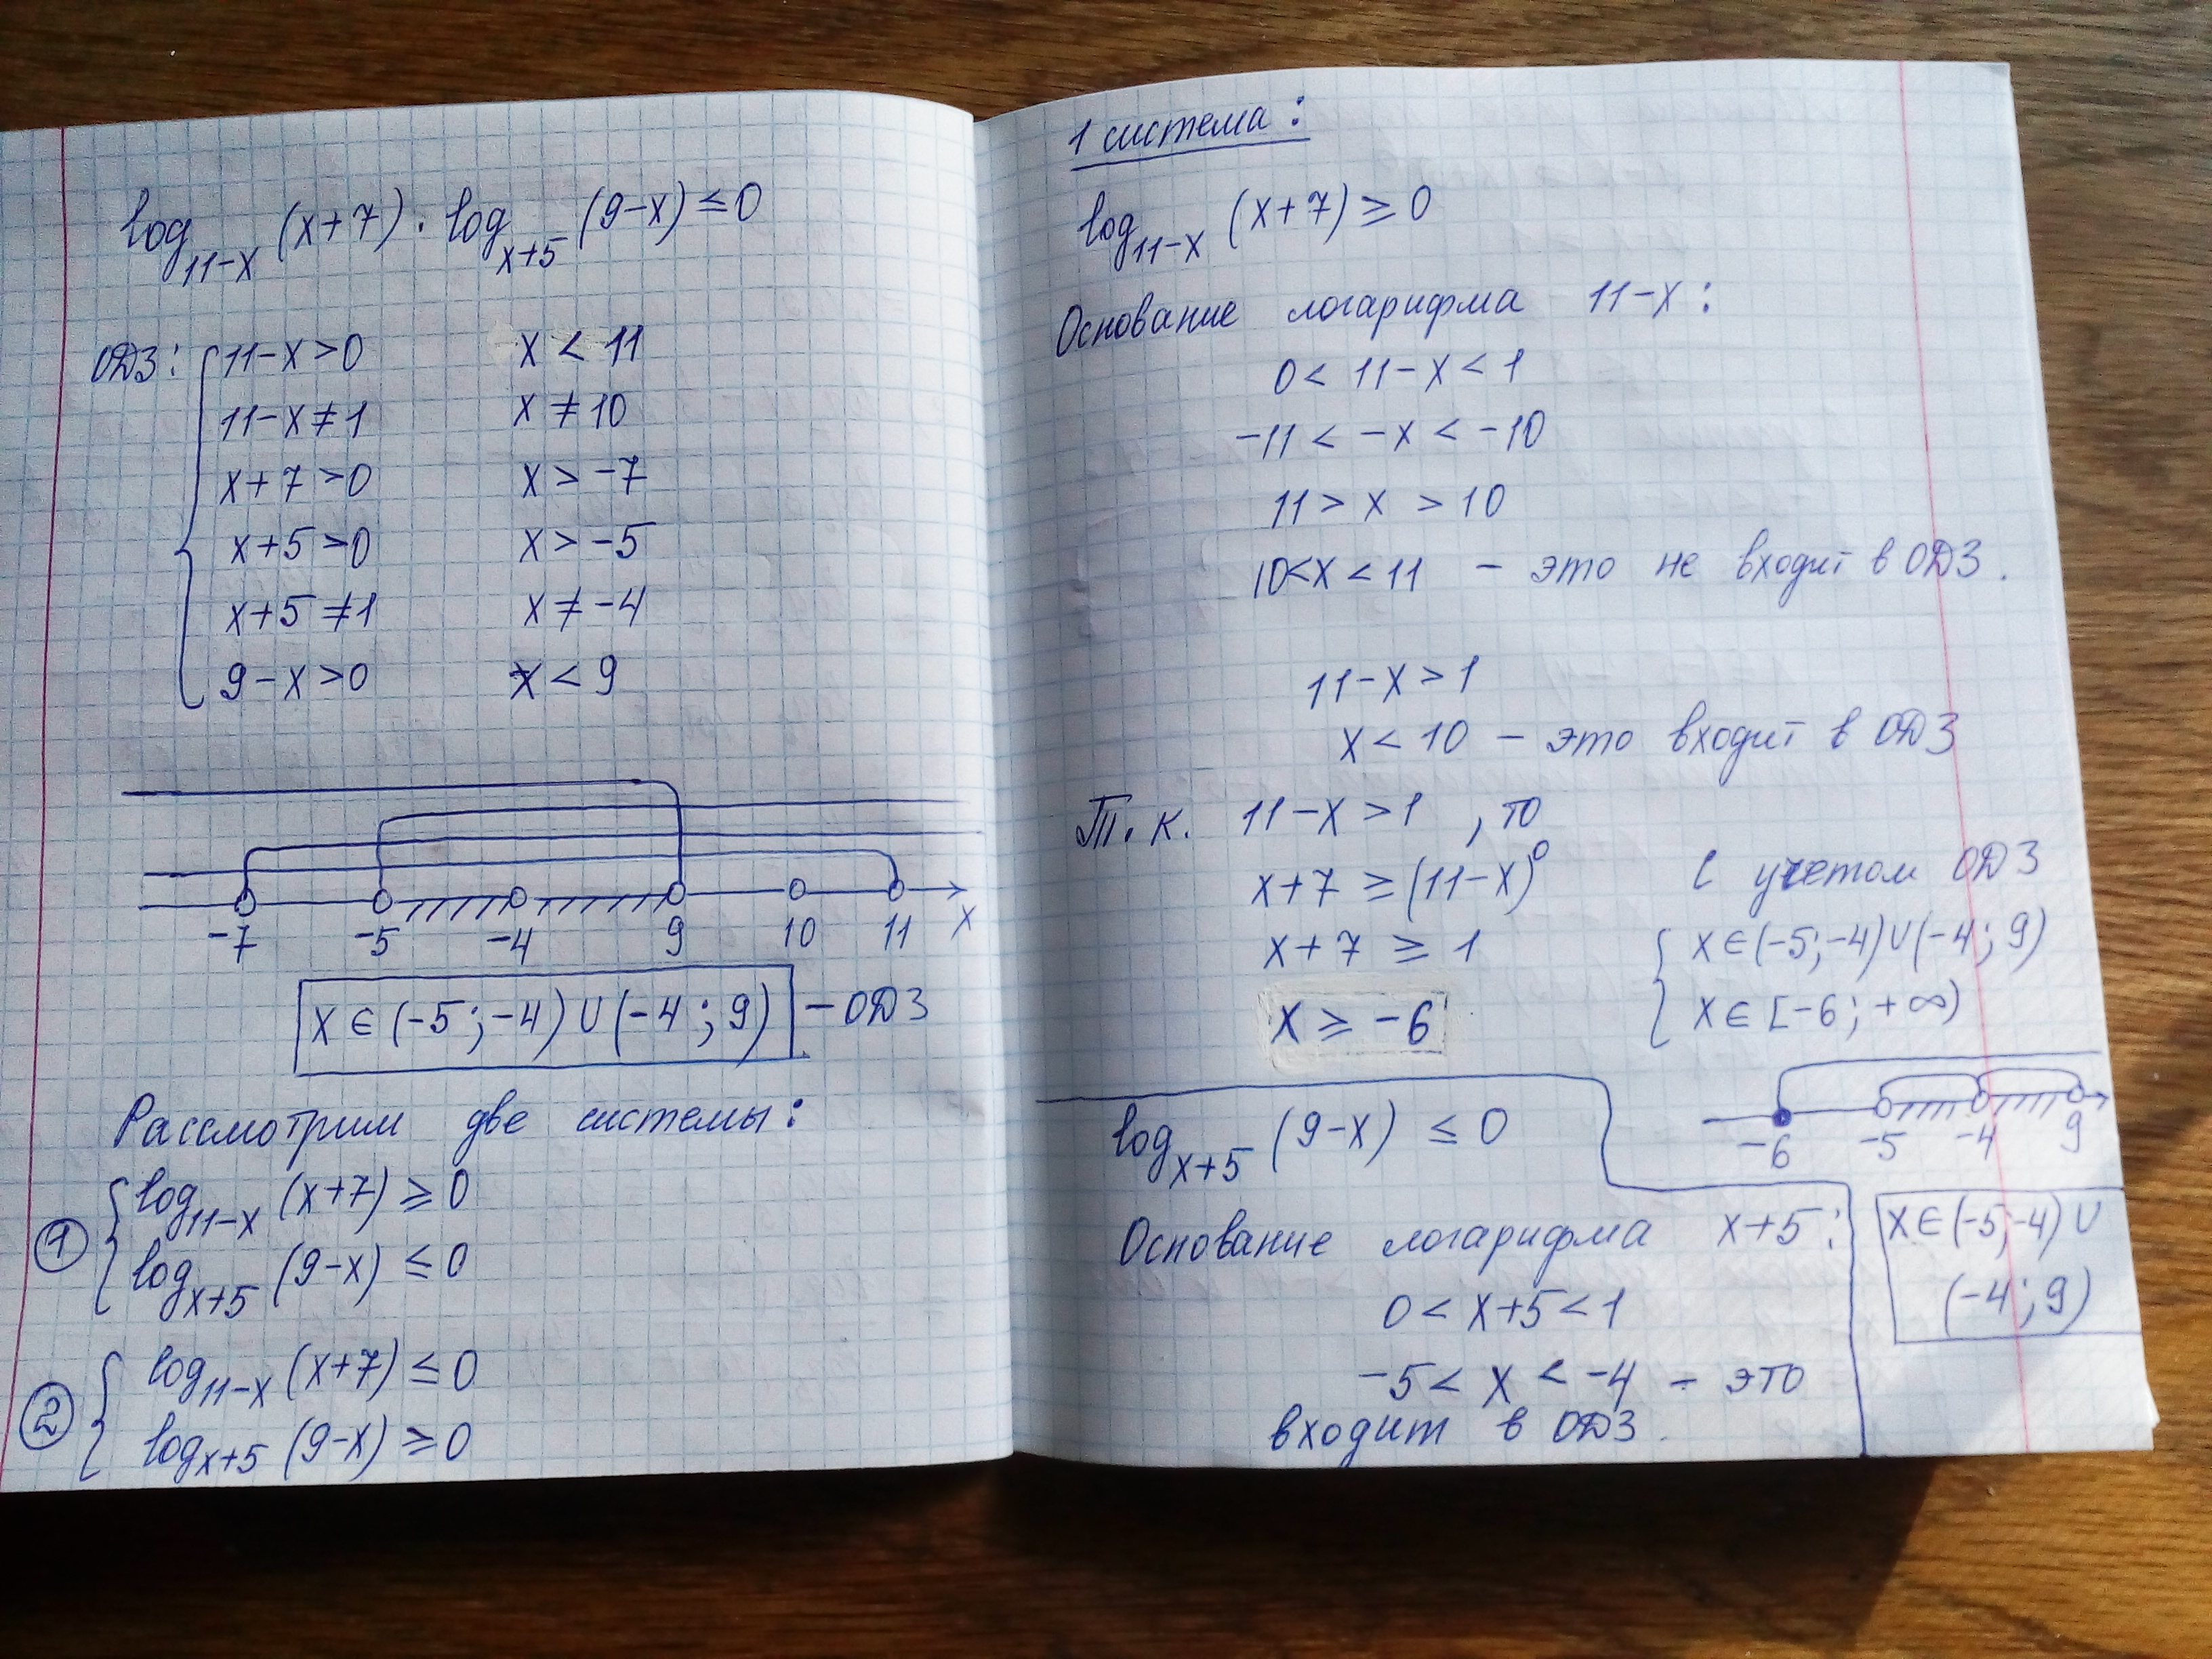 log₁₁₋ₓ (x+7) · logₓ₊₅ (9-x) ≤ 0
ОДЗ: { 11-x>0 x < 11
11-x≠1 x ≠ 10
x+7>0 x > -7
x+5>0 x > -5
x+5≠1 x ≠ -4
9-x>0 x < 9
-7 -5 -4 9 10 11 x
x∈(-5;-4)∪(-4;9) - ОДЗ
Рассмотрим две системы:
① { log₁₁₋ₓ (x+7) ≥ 0
logₓ₊₅ (9-x) ≤ 0
② { log₁₁₋ₓ (x+7) ≤ 0
logₓ₊₅ (9-x) ≥ 0
1 система:
log₁₁₋ₓ (x+7) ≥ 0
Основание логарифма 11-x:
0 < 11-x < 1
-11 < -x < -10
11 > x > 10
10<x<11 - это не входит в ОДЗ.
11-x>1
x<10 - это входит в ОДЗ
Т.к. 11-x>1, то
x+7 ≥ (11-x)⁰
x+7 ≥ 1
x ≥ -6
С учетом ОДЗ
{ x∈(-5;-4)∪(-4;9)
x∈[-6;+∞)
-6 -5 -4 9
x∈(-5;-4)∪
(-4;9)
logₓ₊₅ (9-x) ≤ 0
Основание логарифма x+5:
0 < x+5 < 1
-5 < x < -4 - это
входит в ОДЗ.